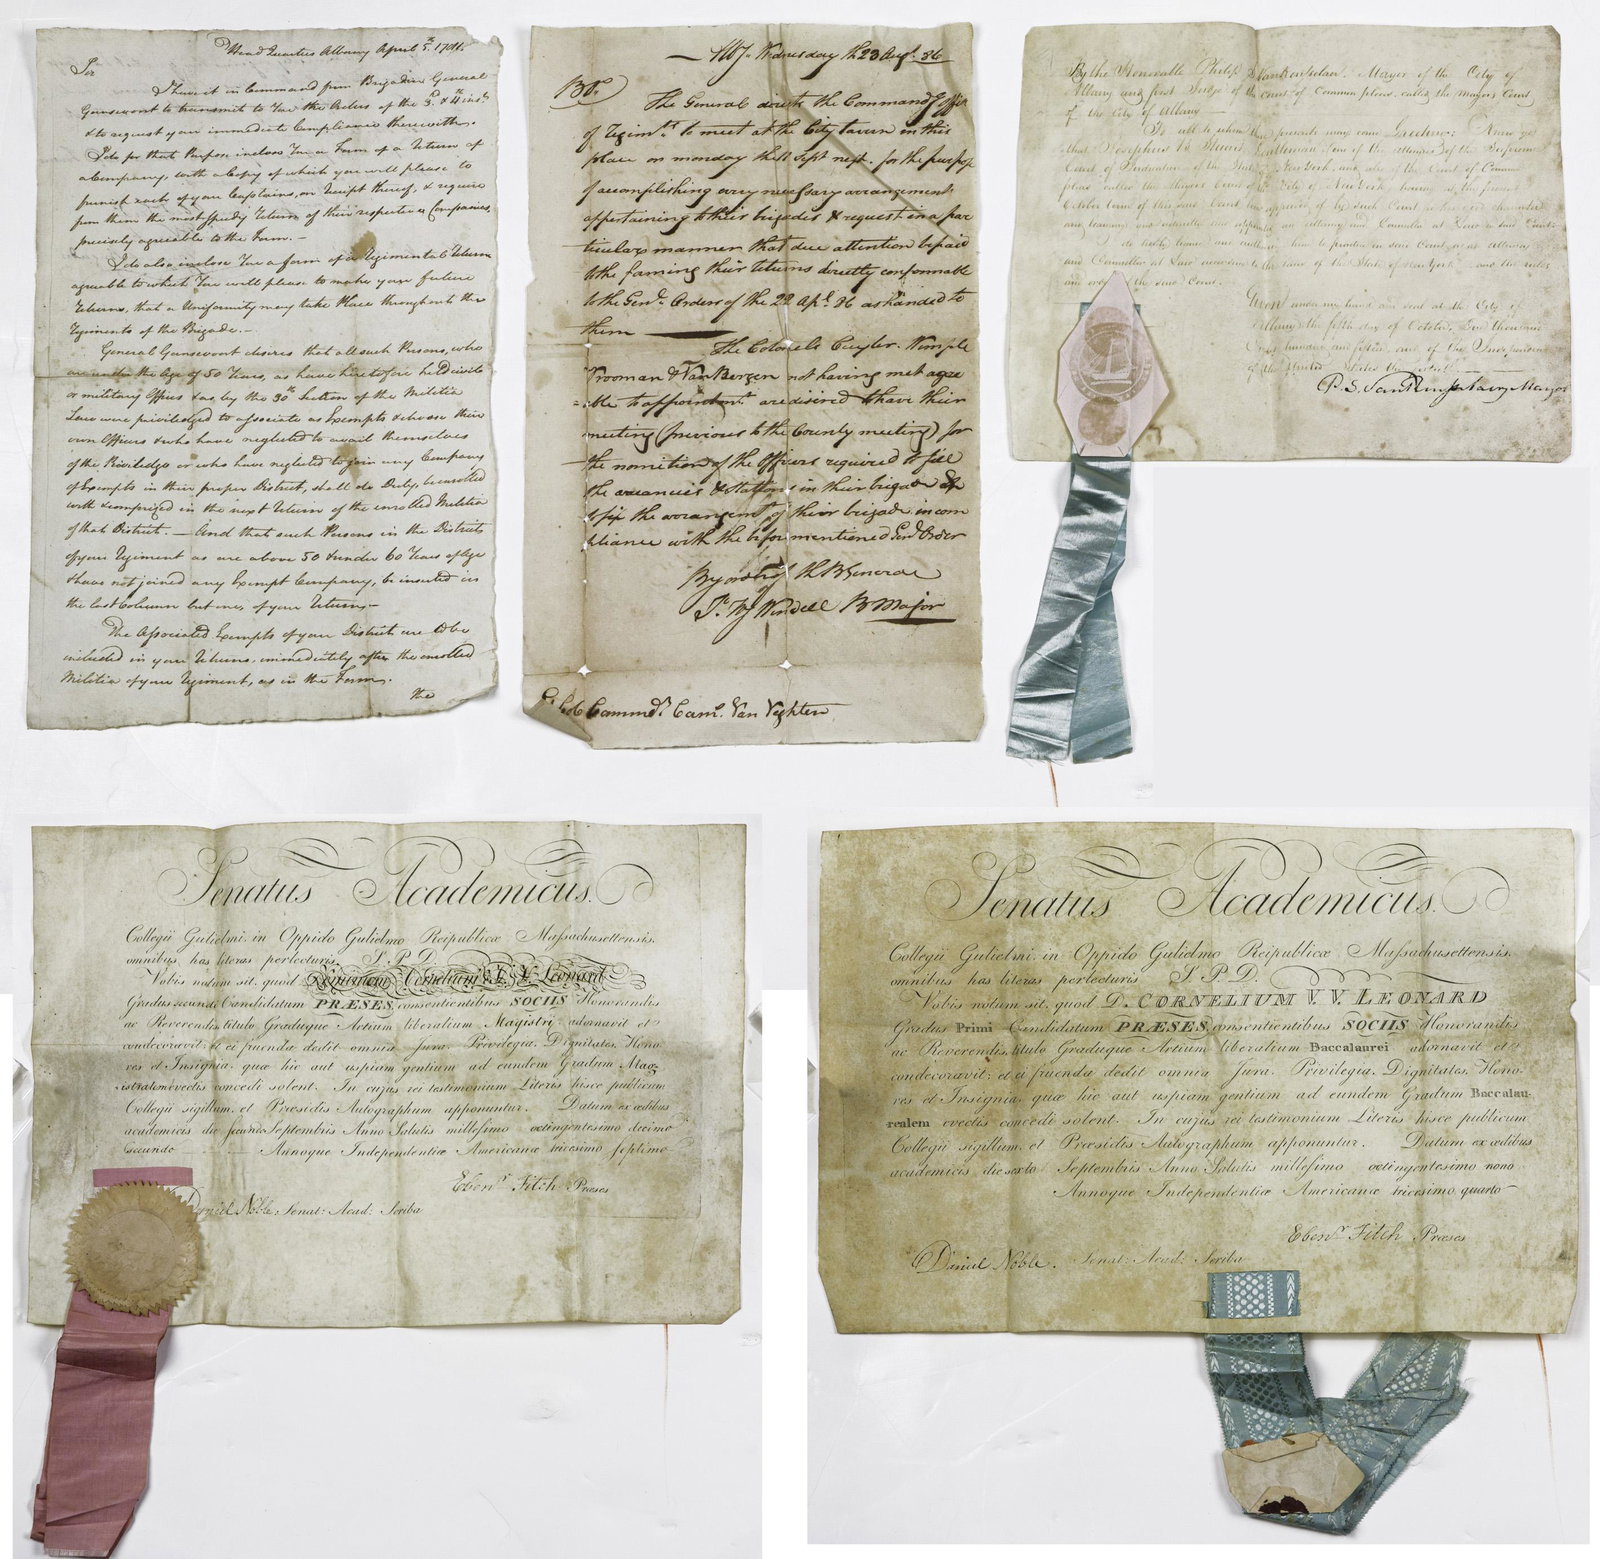 Head Quarters Albany April 5th
Sir
I have it in Command from Brigadier General
Gansevoort to transmit to You the Orders of the 3d & 4th inst
& to request your immediate Compliance therewith.
I do for that Purpose inclose You a Form of a Return of
a Company, with a Copy of which you will please to
furnish each of your Captains, on Receipt thereof, & require
from them the most speedy Returns of their respective Companies,
precisely agreable to the Form. —
I do also inclose You a form of a Regimental Return
agreable to which You will please to make your future
Returns, that a Uniformity may take Place throughout the
Regiments of the Brigade. —
General Gansevoort desires that all such Persons, who
are under the Age of 50 Years, as have heretofore held civil
or military Offices & as by the 30th Section of the Militia
Law were priviledged to associate as Exempts & choose their
own Officers & who have neglected to avail themselves
of the Priviledge or who have neglected to join any Company
of Exempts in their proper District, shall be Duly inrolled
with & comprized in the next Return of the enrolled Militia
of that District. — And that such Persons in the District
of your Regiment as are above 50 & under 60 Years of Age
& have not joined any Exempt Company, be inserted in
the last Column but one, of your Return —
The Associated Exempts of your District are to be
included in your Returns, immediately after the enrolled
Militia of your Regiment, as in the Form.
The
— Wednesday th 23 Augt. 86
BO.
The General directs the Command'g offic
of Regimts. to meet at the City tavern in this
place on monday th 11 Sept next. for the purpose
of accomplishing every necessary arrangement
appertaining to their brigades & request in a par
ticular manner that due attention be paid
to the forming their returns directly conformable
to the Genl. Orders of the 22 Apl. 86 as handed to
them —
The Colonels Cuyler. Wimple
Vrooman & Van Bergen not having met agree
=able to appointmt. are desired to have their
meeting (previous to the County meeting) for
the nomition of the Officers required to fill
the vacancies & Stations in their brigade &
to fix the arrangemt. of their brigade in com
pliance with the beforementioned Genl Order
By order of th B General
Wendell B Major
Commdt. Van Veghten
By the Honorable Philip S Van Rensselaer. Mayor of the City of
Albany and first Judge of the court of Common pleas, called the Mayors Court
of the City of Albany —
To all to whom these presents may come Greeting: Know ye
that Gentleman one of the attornies of the Supreme
Court of Judicature of the State of New York, and also of the Court of Common
pleas called the Mayors Court of the City of New York having at the
October term of this said Court been approved of by such Court
and learning was admitted an attorney and Counsellor at Law in said Court.
I do hereby him to practice in said Court as an attorney
and Counsellor at Law according to the laws of the State of New York and the rules
and orders of the said Court.
Given under my hand and seal at the City of
Albany the fifth day of October. One thousand
Eight hundred and fifteen and of the Independence
of the United States the
P. S. Van Rensselaer Mayor
Senatus Academicus.
Collegii Gulielmi, in Oppido Gulielmo Reipublicæ Massachusettensis,
omnibus, has literas perlecturis, S. P. D.
Vobis notum sit, quod Dominum Cornelium V. V. Leonard
Gradus secundi Candidatum PRÆSES, consentientibus SOCIIS Honorandis
ac Reverendis, titulo Graduque Artium liberalium Magistri adornavit et
condecoravit; et ei fruenda dedit omnia Jura, Privilegia, Dignitates, Hono-
res et Insignia, quæ hic aut uspiam gentium ad eundem Gradum Mag-
istralem evectis concedi solent. In cujus rei testimonium Literis hisce publicum
Collegii sigillum, et Præsidis Autographum apponuntur. Datum ex ædibus
academicis die secundo Septembris Anno Salutis millesimo octingentesimo decimo
secundo Annoque Independentiæ Americanæ tricesimo septimo
Ebenr. Fitch Præses
Daniel Noble, Senat: Acad: Scriba
Senatus Academicus.
Collegii Gulielmi, in Oppido Gulielmo Reipublicæ Massachusettensis,
omnibus has literas perlecturis S. P. D.
Vobis notum sit, quod D. CORNELIUM V. V. LEONARD
Gradus Primi Candidatum PRÆSES, consentientibus SOCIIS Honorandis
ac Reverendis, titulo Graduque Artium liberalium Baccalaurei adornavit et
condecoravit; et ei fruenda dedit omnia Jura, Privilegia, Dignitates, Hono-
res et Insignia, quæ hic aut uspiam gentium ad eundem Gradum Baccalau-
realem evectis concedi solent. In cujus rei testimonium Literis hisce publicum
Collegii sigillum, et Præsidis Autographum apponuntur. Datum ex ædibus
academicis die sexto Septembris Anno Salutis millesimo octingentesimo nono
Annoque Independentiæ Americanæ tricesimo quarto
Ebenr. Fitch Præses
Daniel Noble. Senat: Acad: Scriba